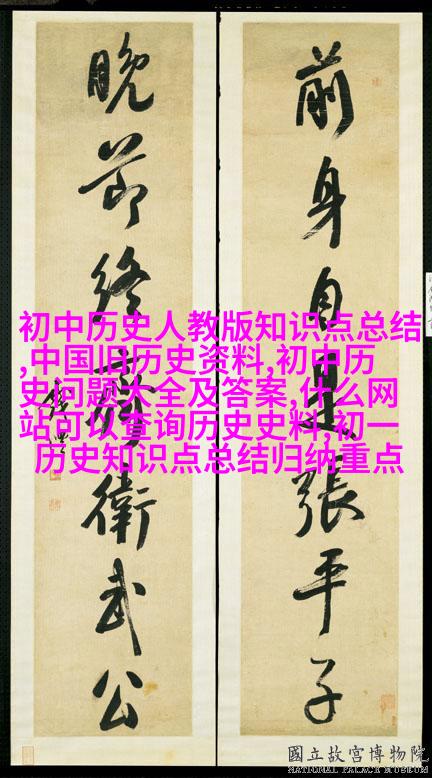 前身自是張平子
晚節終衛武公
初中历史人教版知识点总结
,中国旧历史资料,初中历
史问题大全及答案,什么网
站可以查询历史史料,初一
历史知识点总结归纳重点
國立故宮博物院
NATIONAL PALACE MUSEUM